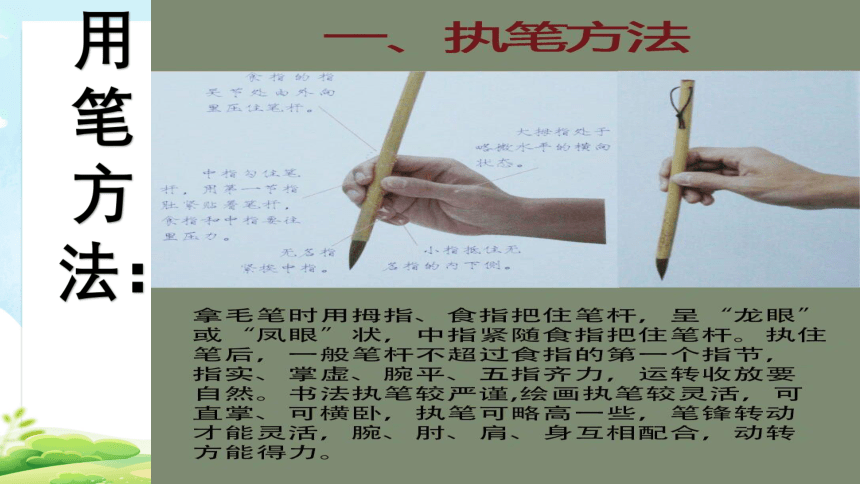 用
笔
方
法:
一、执笔方法
食指的指
关节处由外向
里压住笔杆。
大拇指处于
略微水平的横向
状态。
中指勾住笔
杆，用第一节指
肚紧贴着笔杆，
食指和中指要往
里压力。
无名指
紧挨中指。
小指抵住无
名指的内下侧。
拿毛笔时用拇指、食指把住笔杆，呈“龙眼”
或“凤眼”状，中指紧随食指把住笔杆。执住
笔后，一般笔杆不超过食指的第一个指节，
指实、掌虚、腕平、五指齐力，运转收放要
自然。书法执笔较严谨,绘画执笔较灵活，可
直掌、可横卧，执笔可略高一些，笔锋转动
才能灵活，腕、肘、肩、身互相配合，动转
方能得力。